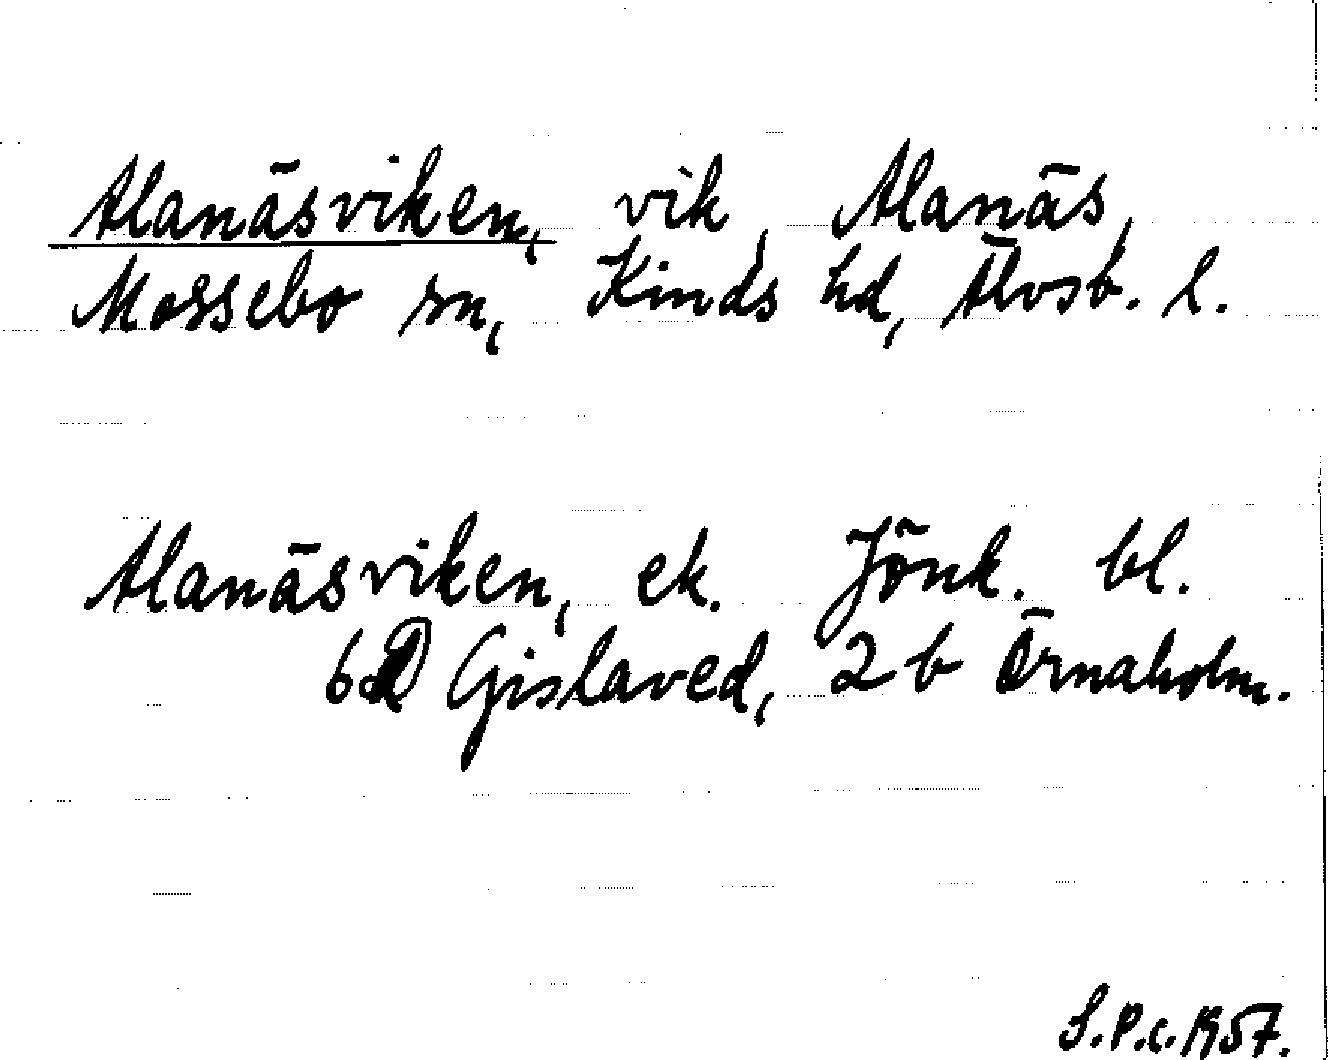 Alanäsviken, vik, Alanäs,
Mossebo sn, Kinds hd, Älvsb. l.
Alanäsviken, ek. Jönk. bl.
6d Gislaved, 2 b Örnaholm.
S.P.c. 1957.